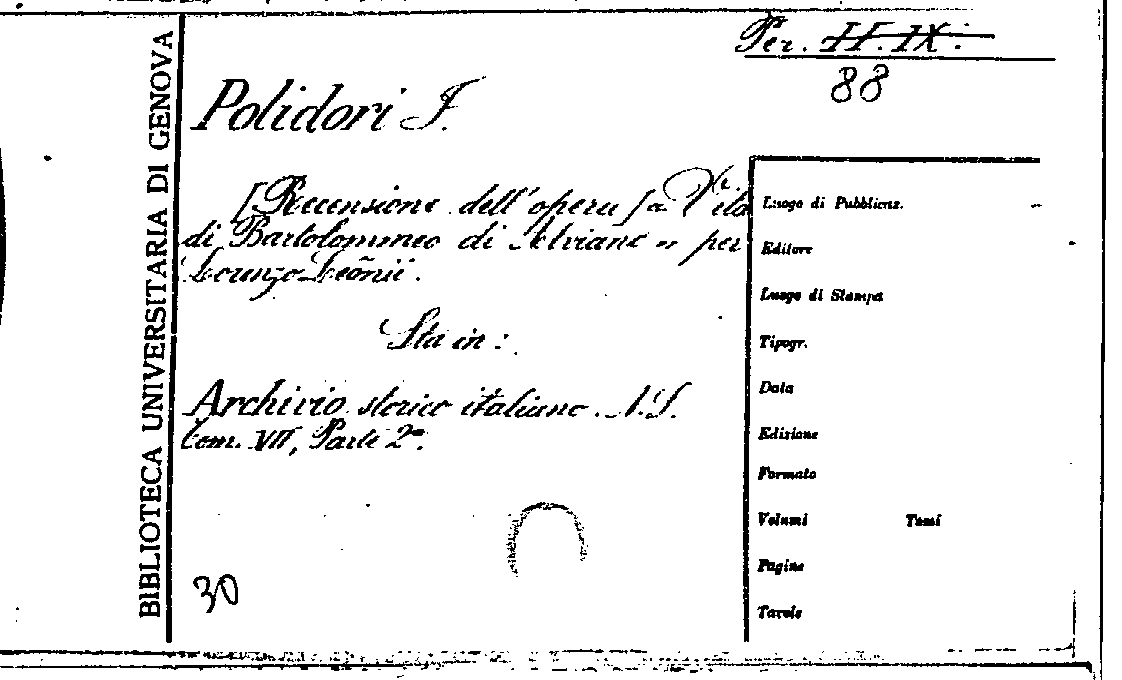 BIBLIOTECA UNIVERSITARIA DI GENOVA
Per. II. IX.
88
Polidori F.
[Recensione dell'opera « Vita
di Bartolommeo di Alviano » per
Lorenzo Leònii.
Sta in :
Archivio storico italiano. N.S.
Tom. VII, Parte 2ª.
30
Luogo di Pubblicaz.
Editore
Luogo di Stampa
Tipogr.
Data
Edizione
Formato
Volumi Tomi
Pagine
Tavole